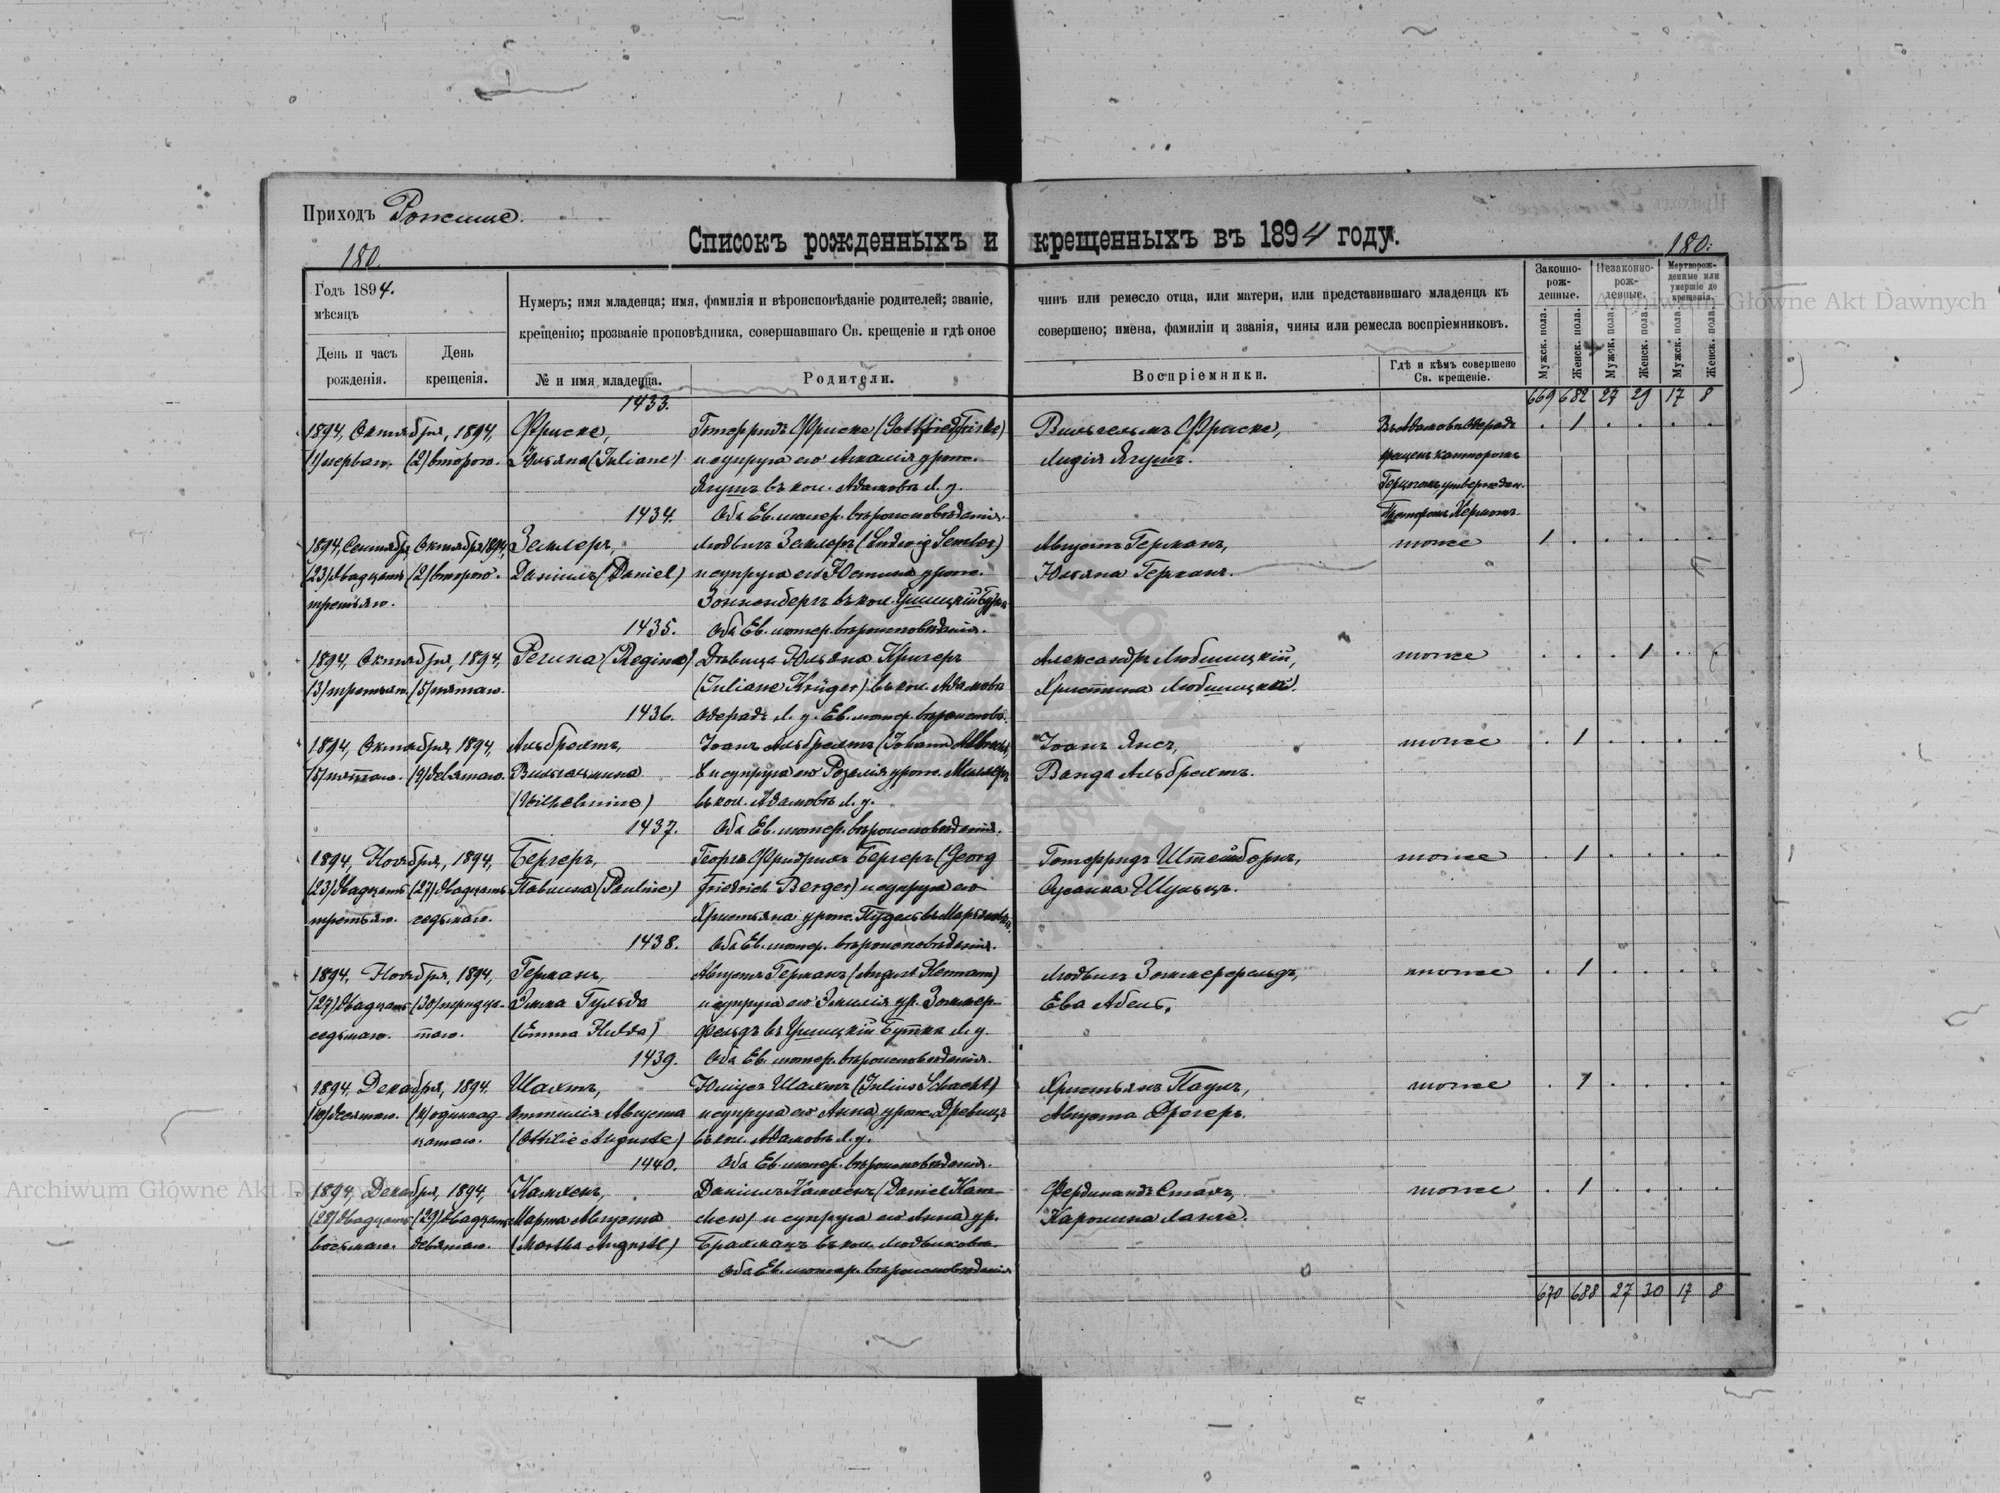 Приходъ Рожище.
180.
Списокъ рожденныхъ и крещенныхъ въ 1894 году.
180.
Годъ 1894.
мѣсяцъ
День и часъ рожденія.
День крещенія.
Нумеръ; имя младенца; имя, фамилія и вѣроисповѣданіе родителей; званіе, чинъ или ремесло отца, или матери, или представившаго младенца къ
крещенію; прозваніе проповѣдника, совершавшаго Св. крещеніе и гдѣ оное совершено; имена, фамиліи и званія, чины или ремесла воспріемниковъ.
№ и имя младенца.
Родители.
Воспріемники.
Гдѣ и кѣмъ совершено Св. крещеніе.
Законно-рож-денные.
Незаконно-рож-денные.
Мертворож-денные или умершіе до крещенія.
Мужск. пола. Женск. пола. Мужск. пола. Женск. пола. Мужск. пола. Женск. пола.
669 682 27 29 17 8
1433.
1894, Октября, 1894, Фриске, Готфридъ Фриске (Gottfried Friske) Вильгельмъ Фриске, 1
(1) перваго. (2) второго. Юльяна (Juliane) и супруга его Амалія урож. Лидія Ягушъ.
Ягушъ въ кол. Адамовъ Л. у.
1434. Оба Ев. лютер. вѣроисповѣданія.
1894, Сентября Октября 1894, Землеръ, Людвигъ Землеръ (Ludwig Semler) Августъ Германъ, тоже 1
(23) двадцать (2) второго. Даніилъ (Daniel) и супруга его Юстина урож. Юльяна Германъ.
третьяго. Зонненбергъ въ кол.
1435. Оба Ев. лютер. вѣроисповѣданія.
1894, Октября, 1894, Регина (Regine) Дѣвица Юльяна Кригеръ Александръ Любшицкій, тоже 1
(3) третьяго. (5) пятаго. (Juliane Krüger) въ кол. Адамовъ Христина Любшицкая.
1436. Сверадъ Л. у. Ев. лютер. вѣроисповѣ.
1894, Октября, 1894, Альбрехтъ, Іоанъ Альбрехтъ (Johann Albrecht) Іоанъ Янсъ, тоже 1
(5) пятаго. (9) девятаго. Вильгельмина и супруга его Розалія урож. Миллеръ Ванда Альбрехтъ.
(Wilhelmine) въ кол. Адамовъ Л. у.
1437. Оба Ев. лютер. вѣроисповѣданія.
1894, Ноября, 1894, Бергеръ, Георгъ Фридрихъ Бергеръ (Georg Готфридъ Штейнборнъ, тоже 1
(23) двадцать (27) двадцать Павлина (Pauline) Friedrich Berger) и супруга его Сусанна Шульцъ.
третьяго. седьмаго. Христьяна урож. Пудель въ
1438. Оба Ев. лютер. вѣроисповѣданія.
1894, Ноября, 1894, Германъ, Августъ Германъ (August Hermann) Людвигъ Зоммерфельдъ, тоже 1
(27) двадцать (30) тридца- Эмма Гульда и супруга его Эмилія ур. Зоммер- Ева Абель.
седьмаго. таго. (Emma Hulda) фельдъ въ Л. у.
1439. Оба Ев. лютер. вѣроисповѣданія.
1894, Декабря, 1894. Шахтъ, Юліусъ Шахтъ (Julius Schacht) Христьянъ Паулъ, тоже 1
(10) десятаго. (11) одиннад- Оттилія Августа и супруга его Анна урож. Древицъ Августа Фрегеръ.
цатаго. (Ottilie Auguste) въ кол. Адамовъ Л. у.
1440. Оба Ев. лютер. вѣроисповѣданія.
1894, Декабря, 1894, Камхенъ, Даніилъ Камхенъ (Daniel Kam- Фердинандъ Сталь, тоже 1
(28) двадцать (29) двадцать Марта Августа chen) и супруга его Анна ур. Каролина Ланге.
восьмаго. девятаго. (Martha Auguste) Брахманъ въ кол. Людвиковка.
Оба Ев. лютер. вѣроисповѣданія
670 688 27 30 17 8
Archiwum Główne Akt Dawnych